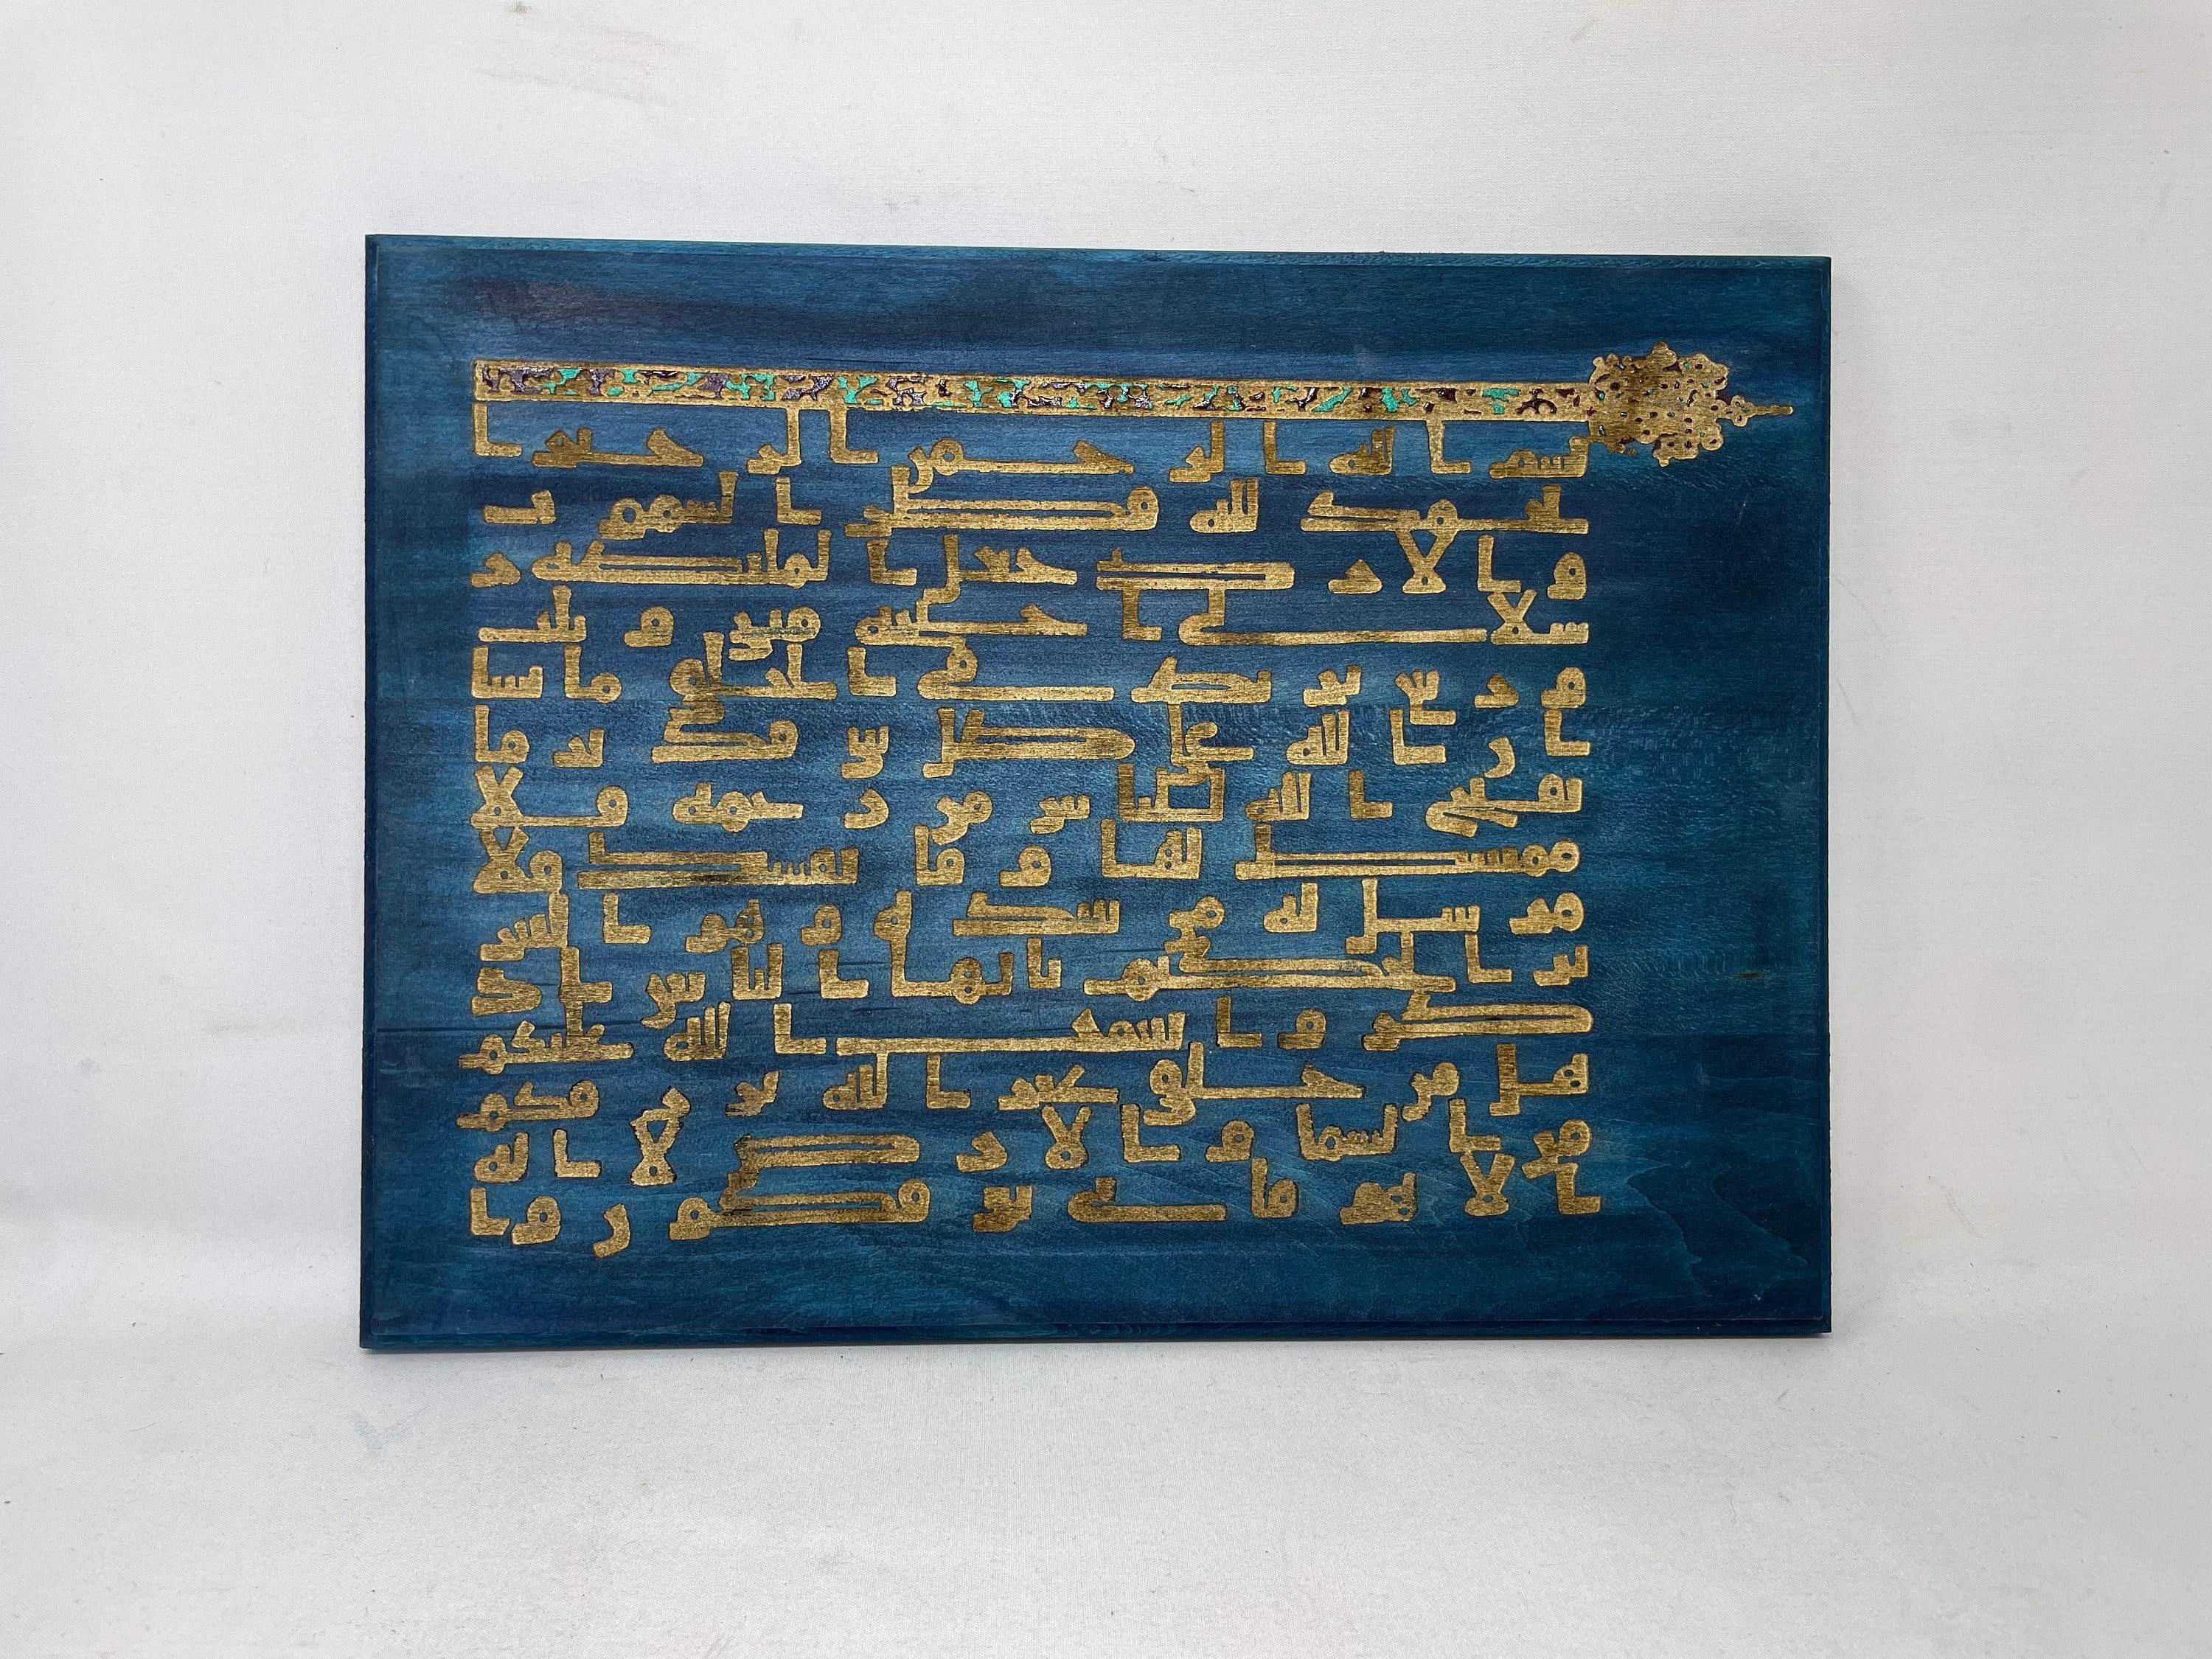 بسم الله الرحمن الرحيم ا
لحمد لله فطر السموت
و الارض جعل الملئكة ر
سلا اولى اجنحة مثنى و ثلث
و ربع يزيد فى الخلق ما يشا
ان الله على كل شى قدير ما
يفتح الله للناس من رحمة فلا
ممسك لها و ما يمسك فلا
مرسل له من بعده و هو العز
يز الحكيم يايها الناس ا
ذكروا نعمت الله عليكم
هل من خلق غير الله يرزقكم
من السما و الارض لا اله
الا هو فانى توفكون و ا